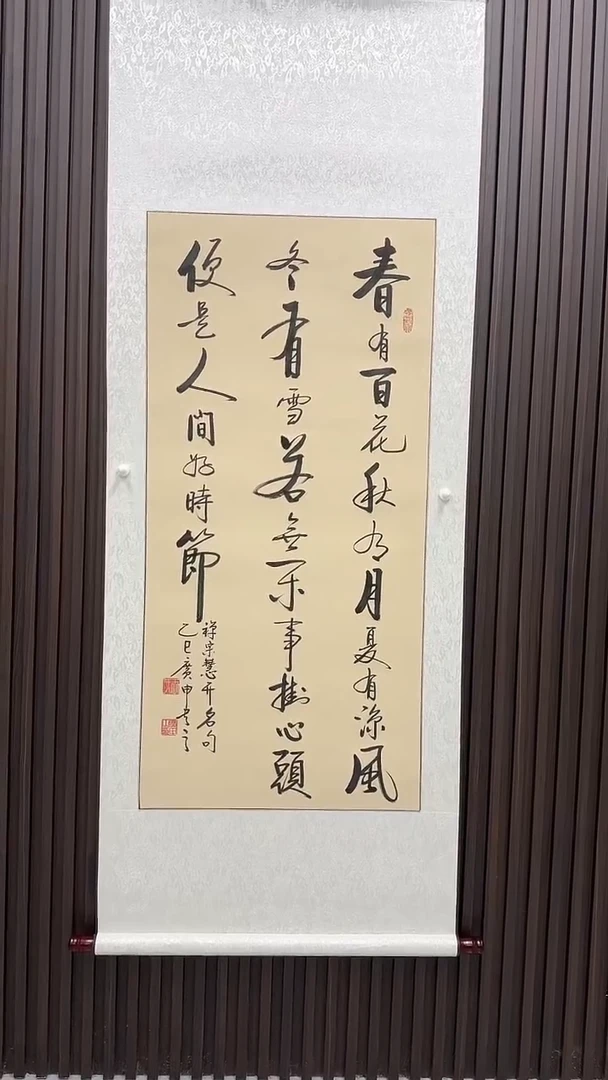 春有百花秋有月夏有涼風
冬有雪若無閑事掛心頭
便是人間好時節
禪宗慧開名句
乙巳廣申書之